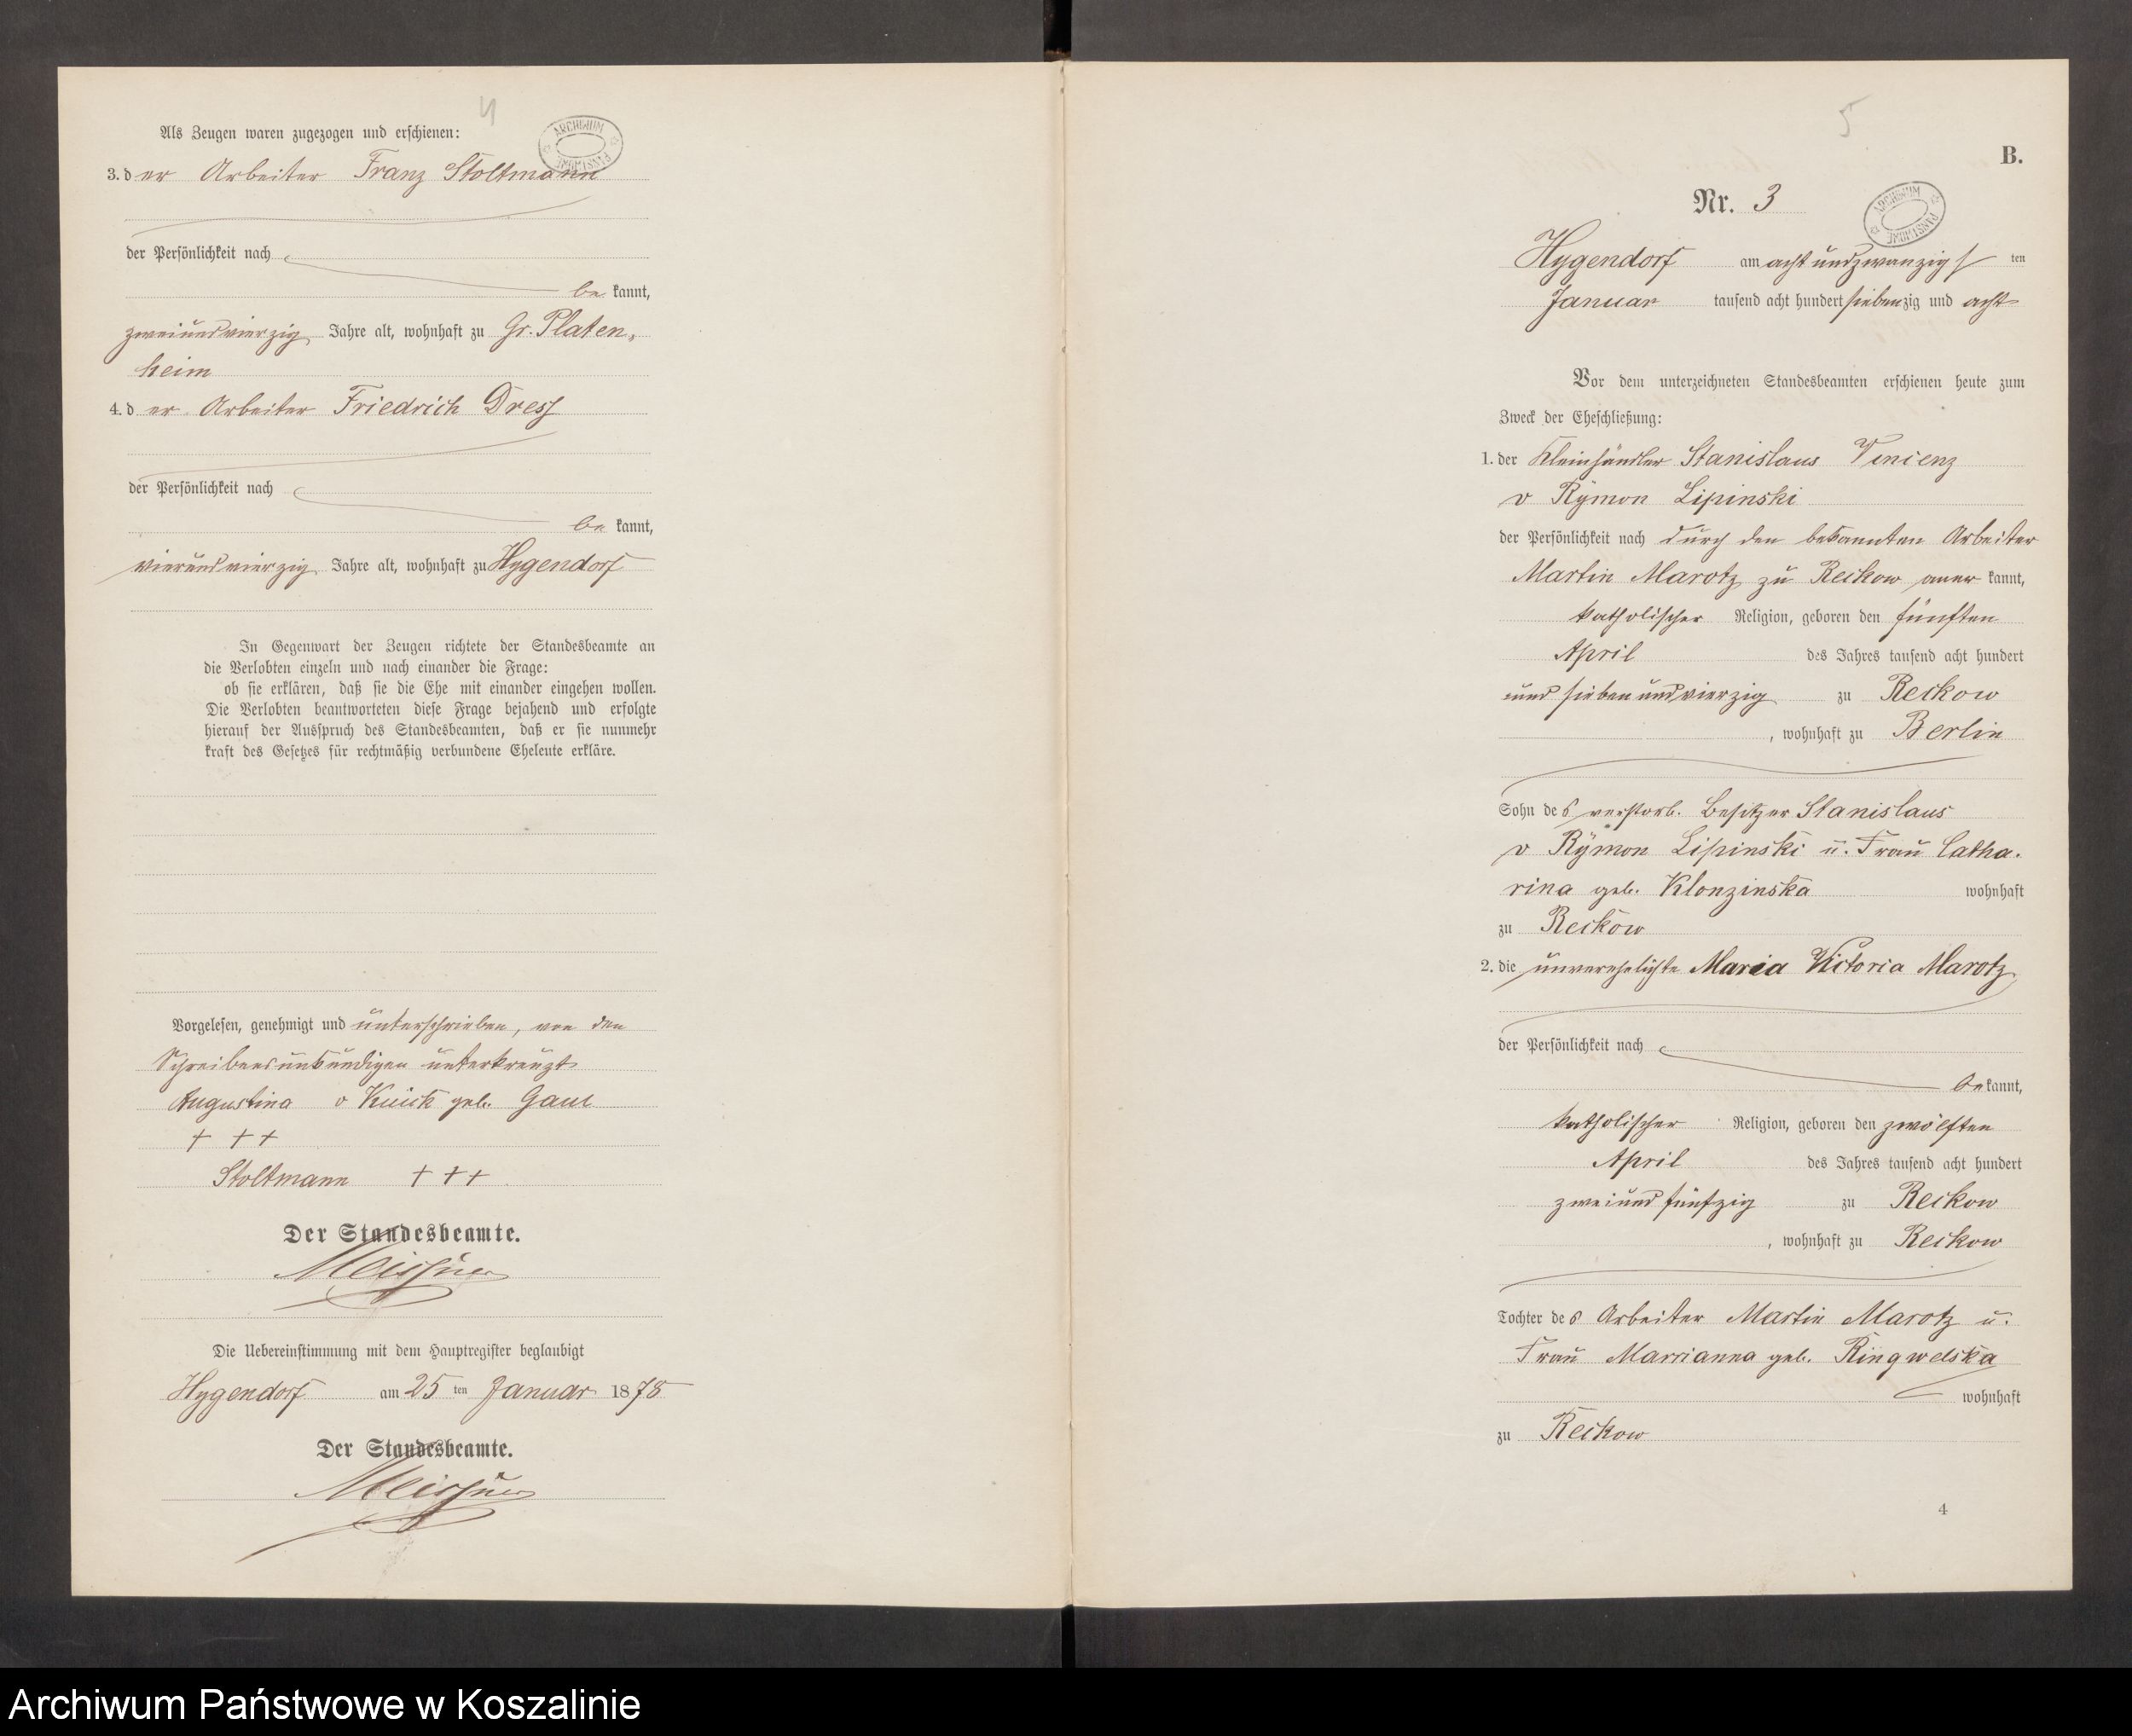 4
Als Zeugen waren zugezogen und erschienen:
ARCHIWUM PAŃSTWOWE
3. der Arbeiter Franz Stoltmann
der Persönlichkeit nach
bekannt,
zweiundvierzig Jahre alt, wohnhaft zu Gr. Platen-
heim
4. der Arbeiter Friedrich Dress
der Persönlichkeit nach
bekannt,
vierundvierzig Jahre alt, wohnhaft zu Hygendorf
In Gegenwart der Zeugen richtete der Standesbeamte an
die Verlobten einzeln und nach einander die Frage:
ob sie erklären, daß sie die Ehe mit einander eingehen wollen.
Die Verlobten beantworteten diese Frage bejahend und erfolgte
hierauf der Ausspruch des Standesbeamten, daß er sie nunmehr
kraft des Gesetzes für rechtmäßig verbundene Eheleute erkläre.
Vorgelesen, genehmigt und unterschrieben, von den
Schreibensunkundigen unterkreuzt
Augustina v Kuick geb. Gaul
+ + +
Stoltmann + + +
Der Standesbeamte.
Meissner
Die Uebereinstimmung mit dem Hauptregister beglaubigt
Hygendorf am 25 ten Januar 1878
Der Standesbeamte.
Meissner
5
B.
Nr. 3
ARCHIWUM PAŃSTWOWE
Hygendorf am achtundzwanzigsten
Januar tausend acht hundert siebenzig und acht
Vor dem unterzeichneten Standesbeamten erschienen heute zum
Zweck der Eheschließung:
1. der Kleinhändler Stanislaus Vincenz
v Rymon Lipinski
der Persönlichkeit nach durch den bekannten Arbeiter
Martin Marotz zu Reckow anerkannt,
katholischer Religion, geboren den fünften
April des Jahres tausend acht hundert
und siebenundvierzig zu Reckow
, wohnhaft zu Berlin
Sohn des verstorb. Besitzer Stanislaus
v Rymon Lipinski u. Frau Catha-
rina geb. Klonzinska wohnhaft
zu Reckow
2. die unverehelichte Maria Victoria Marotz
der Persönlichkeit nach
bekannt,
katholischer Religion, geboren den zwölften
April des Jahres tausend acht hundert
zweiundfünfzig zu Reckow
, wohnhaft zu Reckow
Tochter des Arbeiter Martin Marotz u.
Frau Marrianna geb. Ringwelska
wohnhaft
zu Reckow
4
Archiwum Państwowe w Koszalinie